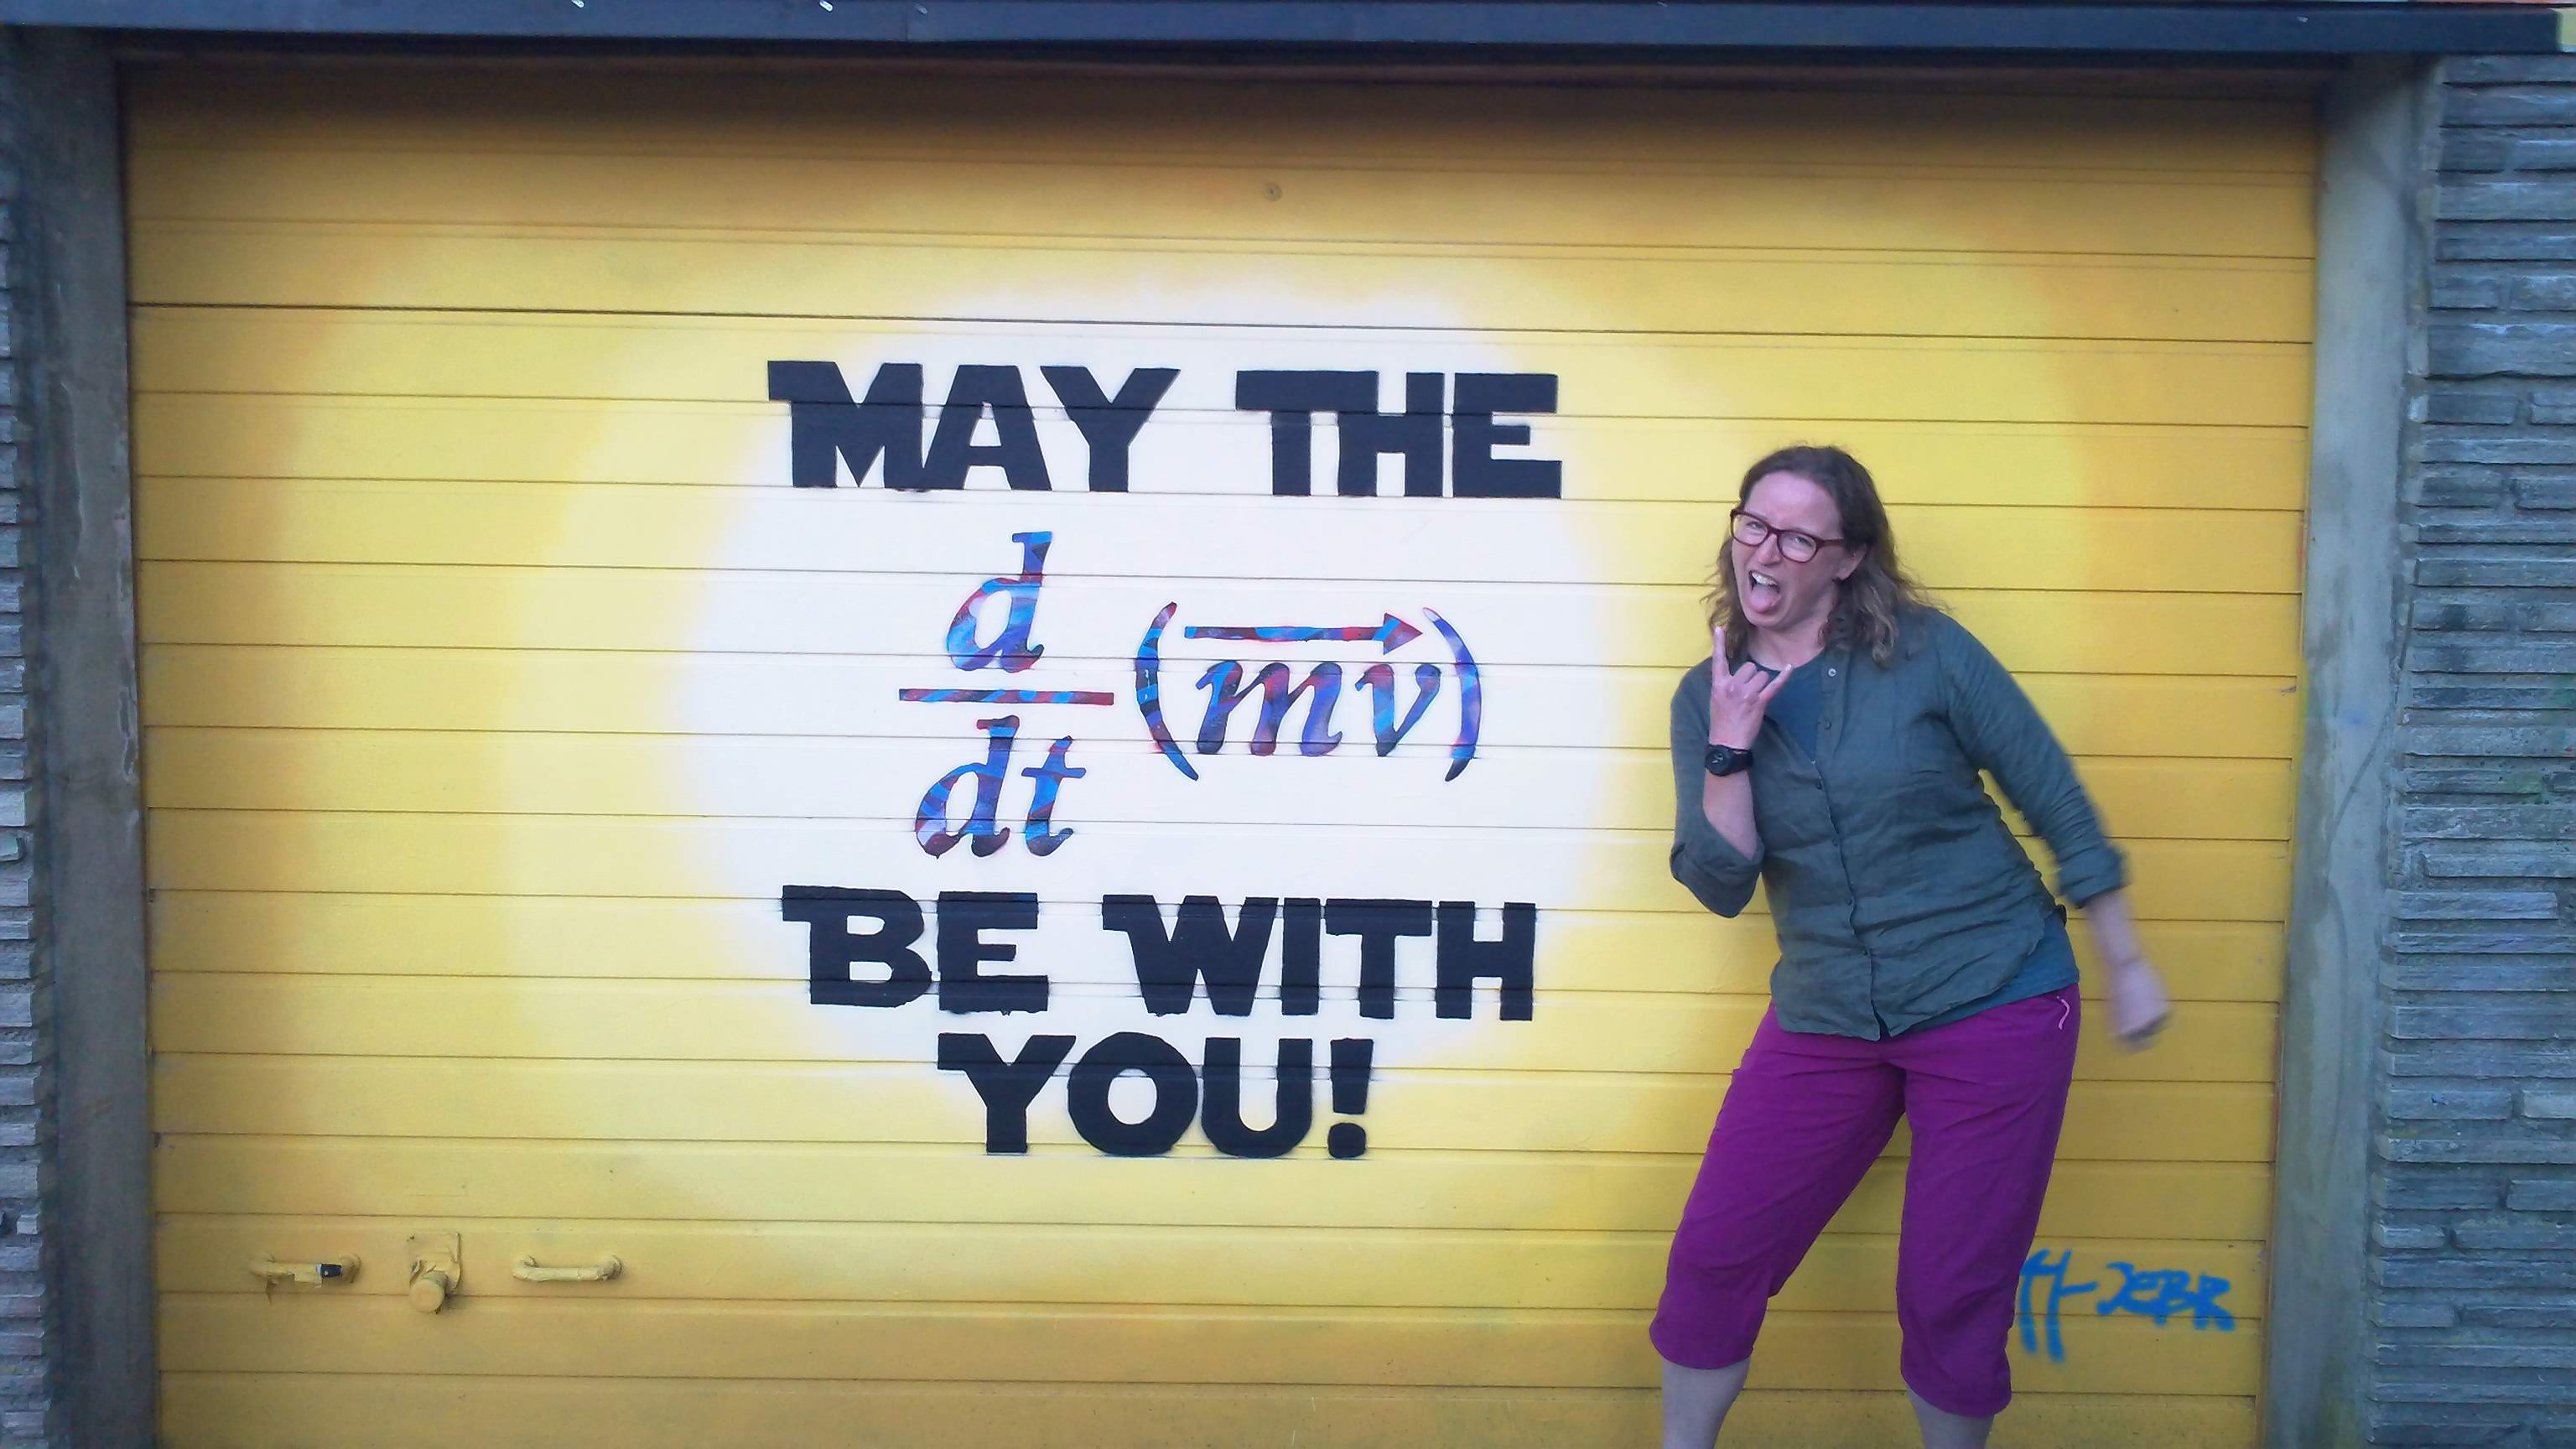 MAY THE
d/dt (mv)
BE WITH
YOU!
JEBR